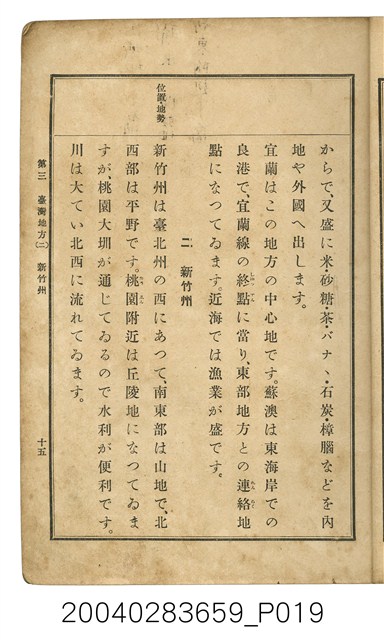 からで、又盛に米・砂糖・茶・バナヽ・石炭・樟腦などを內
地や外國へ出します。
宜蘭はこの地方の中心地です。蘇澳は東海岸での
良港で、宜蘭線の終點に當り、東部地方との連絡地
點になつてゐます。近海では漁業が盛です。
二 新竹州
位置地勢
新竹州は臺北州の西にあつて、南東部は山地で、北
西部は平野です。桃園附近は丘陵地になつてゐま
すが、桃園大圳が通じてゐるので水利が便利です。
川は大てい北西に流れてゐます。
第三 臺灣地方(二) 新竹州
十五
20040283659_P019